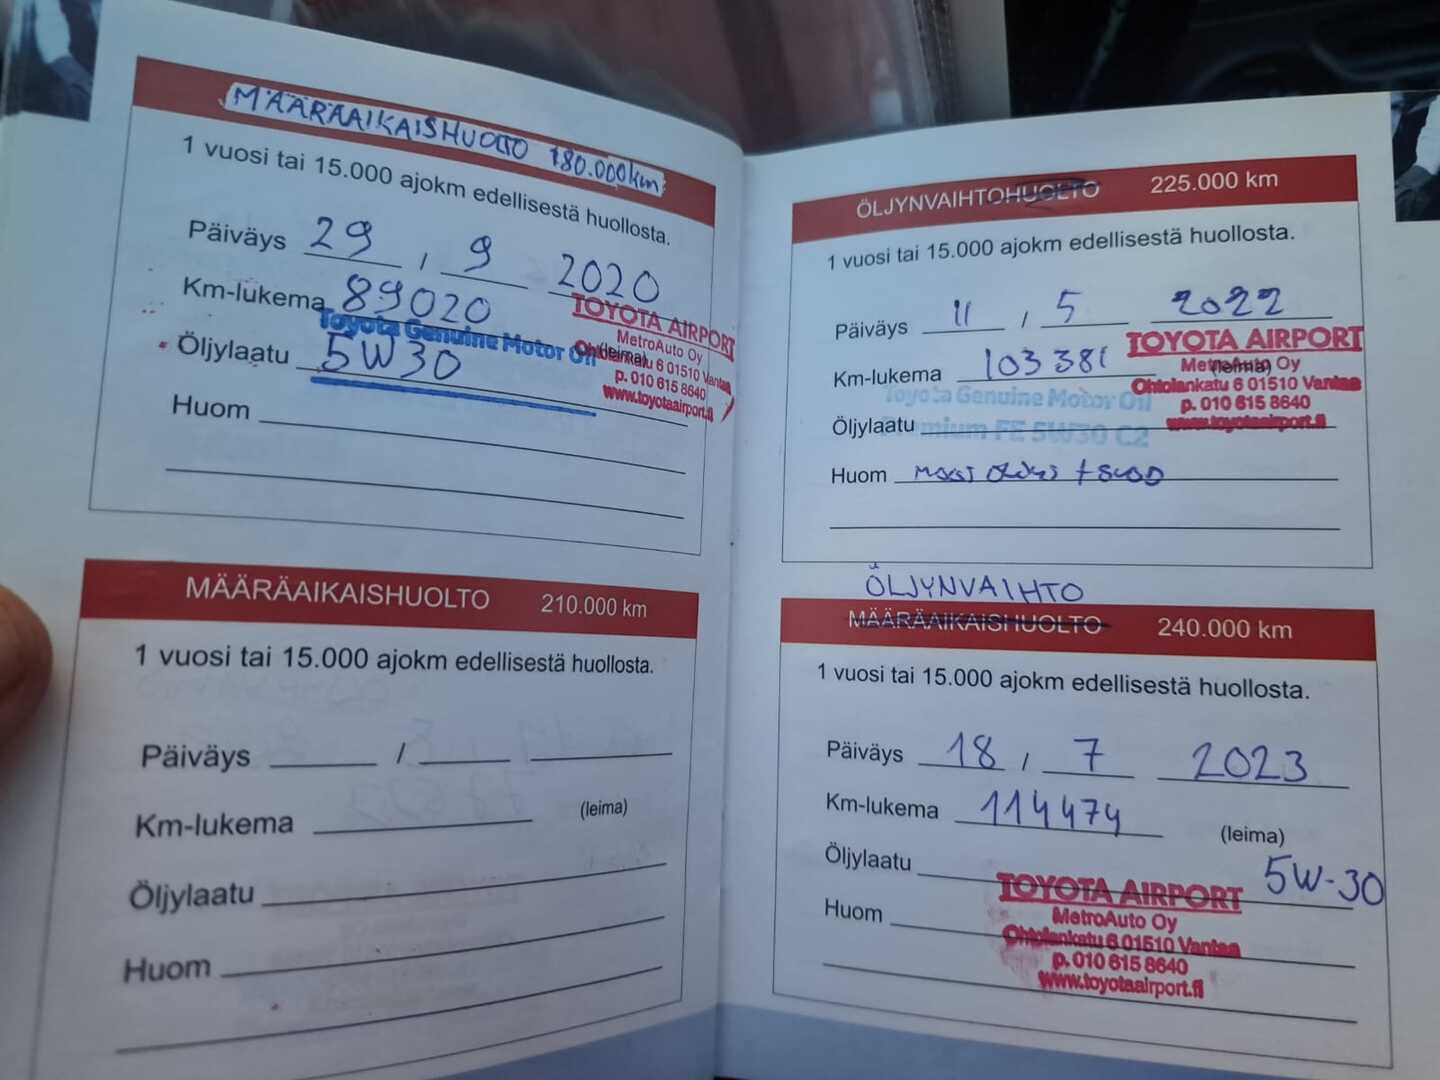 MÄÄRÄAIKAISHUOLTO 180.000km
1 vuosi tai 15.000 ajokm edellisestä huollosta.
Päiväys 29 / 9 2020
Km-lukema 89020 (leima)
Öljylaatu 5W30
Toyota Genuine Motor Oil
TOYOTA AIRPORT
MetroAuto Oy
Ohtolankatu 6 01510 Vantaa
p. 010 615 8640
www.toyotaairport.fi
Huom
MÄÄRÄAIKAISHUOLTO 210.000 km
1 vuosi tai 15.000 ajokm edellisestä huollosta.
Päiväys /
Km-lukema (leima)
Öljylaatu
Huom
ÖLJYNVAIHTOHUOLTO 225.000 km
1 vuosi tai 15.000 ajokm edellisestä huollosta.
Päiväys 11 / 5 2022
Km-lukema 103381 (leima)
TOYOTA AIRPORT
MetroAuto Oy
Ohtolankatu 6 01510 Vantaa
p. 010 615 8640
www.toyotaairport.fi
Toyota Genuine Motor Oil
Premium FE 5W30 C2
Öljylaatu
Huom
ÖLJYNVAIHTO
MÄÄRÄAIKAISHUOLTO 240.000 km
1 vuosi tai 15.000 ajokm edellisestä huollosta.
Päiväys 18 / 7 2023
Km-lukema 114474 (leima)
Öljylaatu 5W-30
Huom
TOYOTA AIRPORT
MetroAuto Oy
Ohtolankatu 6 01510 Vantaa
p. 010 615 8640
www.toyotaairport.fi